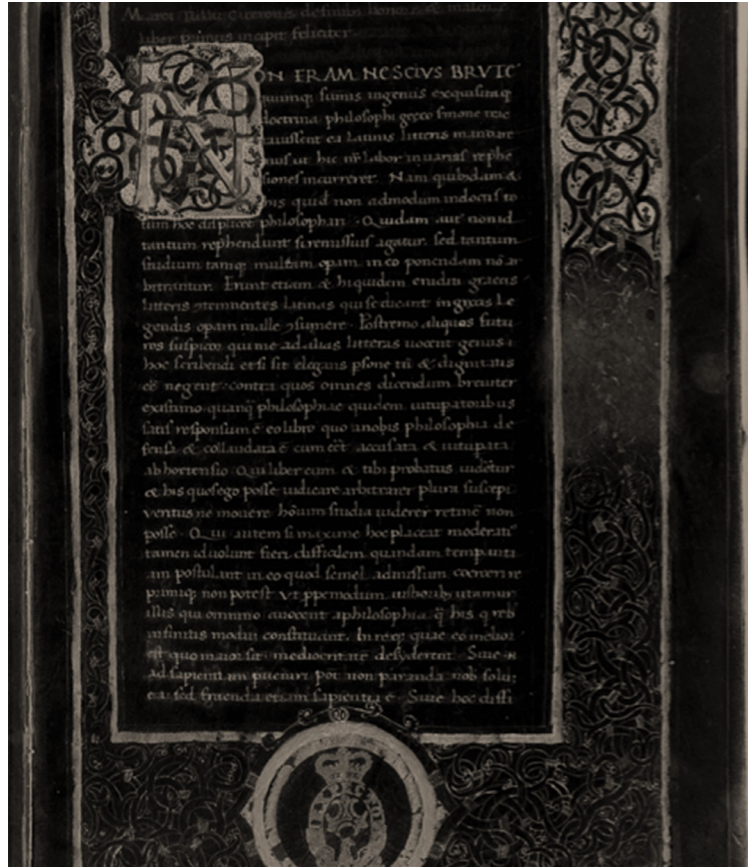 Marci Tullii Ciceronis de finibus bonorum & malorum
liber primus incipit feliciter
NON ERAM NESCIVS BRVTE
quumq; sumis ingeniis exquisitaq
doctrina philosophi greco smone trac
tauissent ea latinis litteris mandare
mus ut hic nr labor in uarias rephe
siones incurreret. Nam quibusdam &
his quid non admodum indoctis to
tum hoc displicet philosophari. Quidam aut non id
tantum rephendunt si remissius agatur. sed tantum
studium tamq; multam opam in eo ponendam nō ar
bitrantur. Erunt etiam & hi quidem eruditi graecis
litteris ɔtemnentes latinas qui se dicant in grecis le
gendis opam malle ɔsumere. Postremo aliquos futu
ros suspicor qui me ad alias litteras uocent genus
hoc scribendi etsi sit elegans psone tn & dignitatis
eē negent contra quos omnes dicendum breuiter
existimo quanq philosophiae quidem uituperatoribus
satis responsum ē eo libro quo a nobis philosophia de
fensa & collaudata ē cum eēt accusata & uitupata
ab hortensio. Qui liber cum & tibi probatus uidetur
& his quos ego posse iudicare arbitrarer plura suscepi
ventus ne mouere hoium studia uiderer retinē non
posse. Qui autem si maxime hoc placeat moderati
tamen id uolunt fieri difficilem quandam tempanti
am postulant in eo quod semel admissum coerceri re
primiq; non potest vt ppemodum iustiorib; utamur
illis qui omnino auocent a philosophia q̄ his q reb
infinitis modum constituant. In reqȝ quae eo melior
est quo maior sit mediocritatē desyderent. Siue .n.
ad sapientiam pueniri pōt non paranda nob solū
ea sed fruenda etiam sapientia ē. Siue hoc diffi